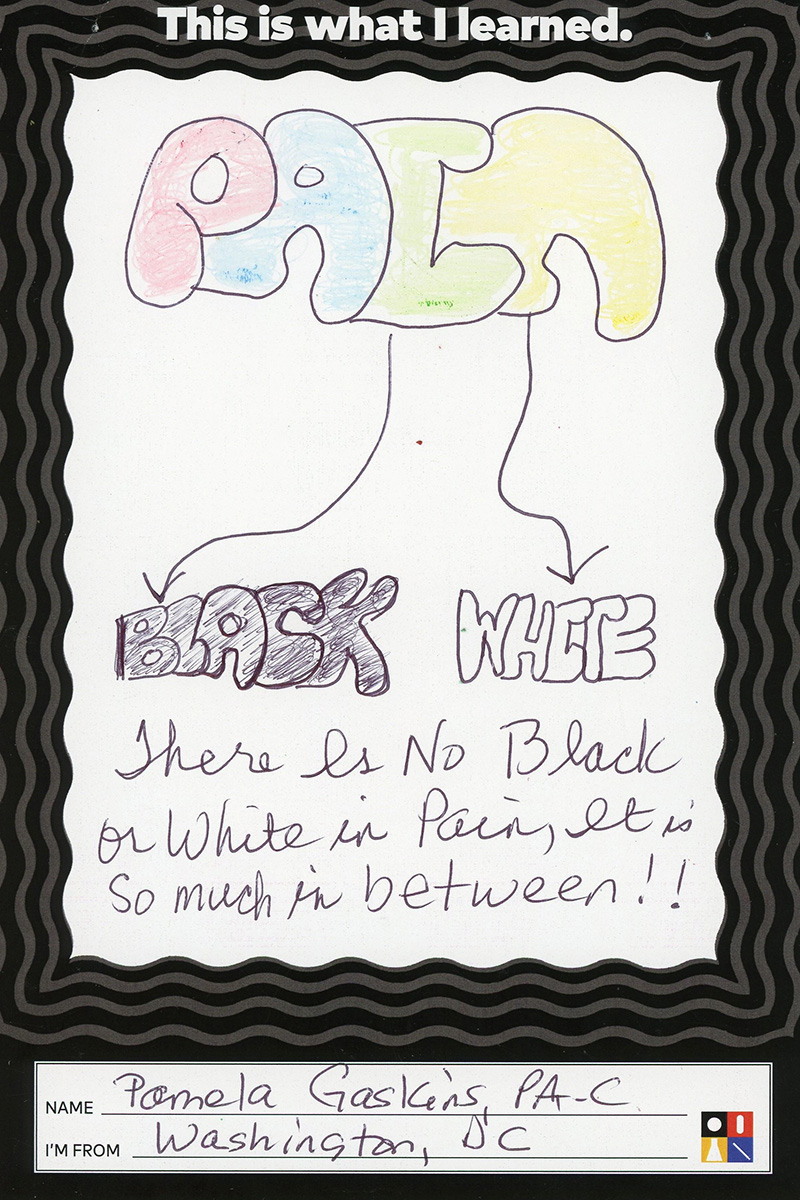 This is what I learned.
PAIN
BLACK WHITE
There Is No Black
or White in Pain, It is
So much in between!!
NAME Pamela Gaskins, PA-C
I'M FROM Washington, DC